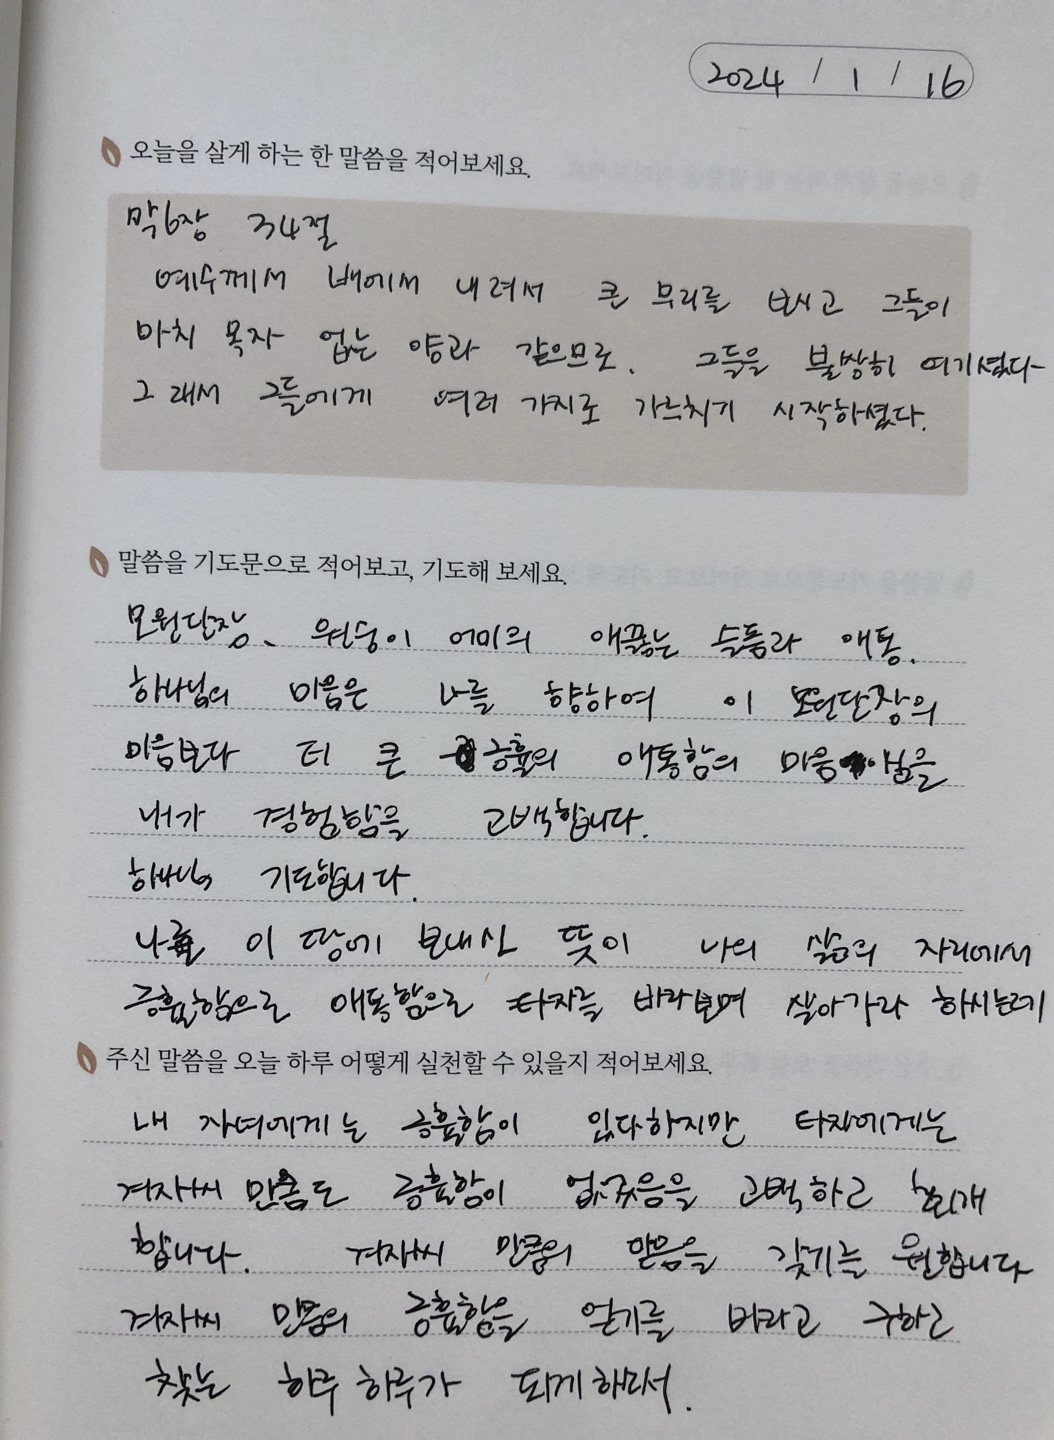 2024 / 1 / 16
오늘을 살게 하는 한 말씀을 적어보세요.
막6장 34절
예수께서 배에서 내려서 큰 무리를 보시고 그들이
마치 목자 없는 양과 같으므로. 그들을 불쌍히 여기셨다
그래서 그들에게 여러 가지로 가르치기 시작하셨다.
말씀을 기도문으로 적어보고, 기도해 보세요.
모원단장、 원숭이 어미의 애끓는 슬픔과 애통.
하나님의 마음은 나를 향하여 이 모원단장의
마음보다 더 큰 긍휼의 애통함의 마음 이심을
내가 경험함을 고백합니다.
하나님 기도합니다.
나를 이 땅에 보내신 뜻이 나의 삶의 자리에서
긍휼함으로 애통함으로 타자를 바라보며 살아가라 하시는데
주신 말씀을 오늘 하루 어떻게 실천할 수 있을지 적어보세요.
내 자녀에게는 긍휼함이 있다하지만 타자에게는
겨자씨 만큼도 긍휼함이 없었음을 고백하고 회개
합니다. 겨자씨 만큼의 믿음을 갖기를 원합니다
겨자씨 만큼의 긍휼함을 얻기를 바라고 구하고
찾는 하루 하루가 되게하려서.